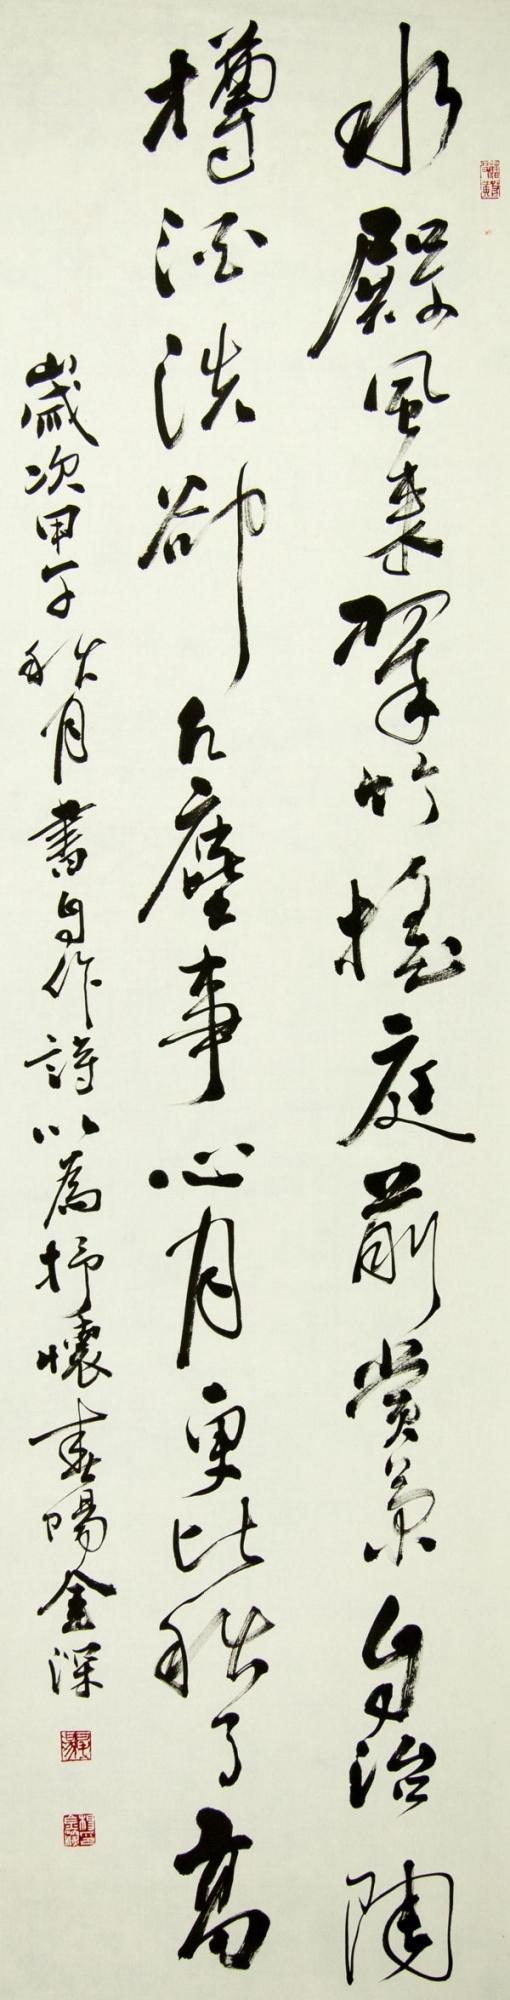 水殿風來翠竹搖庭前賞景自治陶
樽酒洗卻凡塵事心月更比秋月高
歲次甲午秋月書自作詩以為抒懷壽陽金深